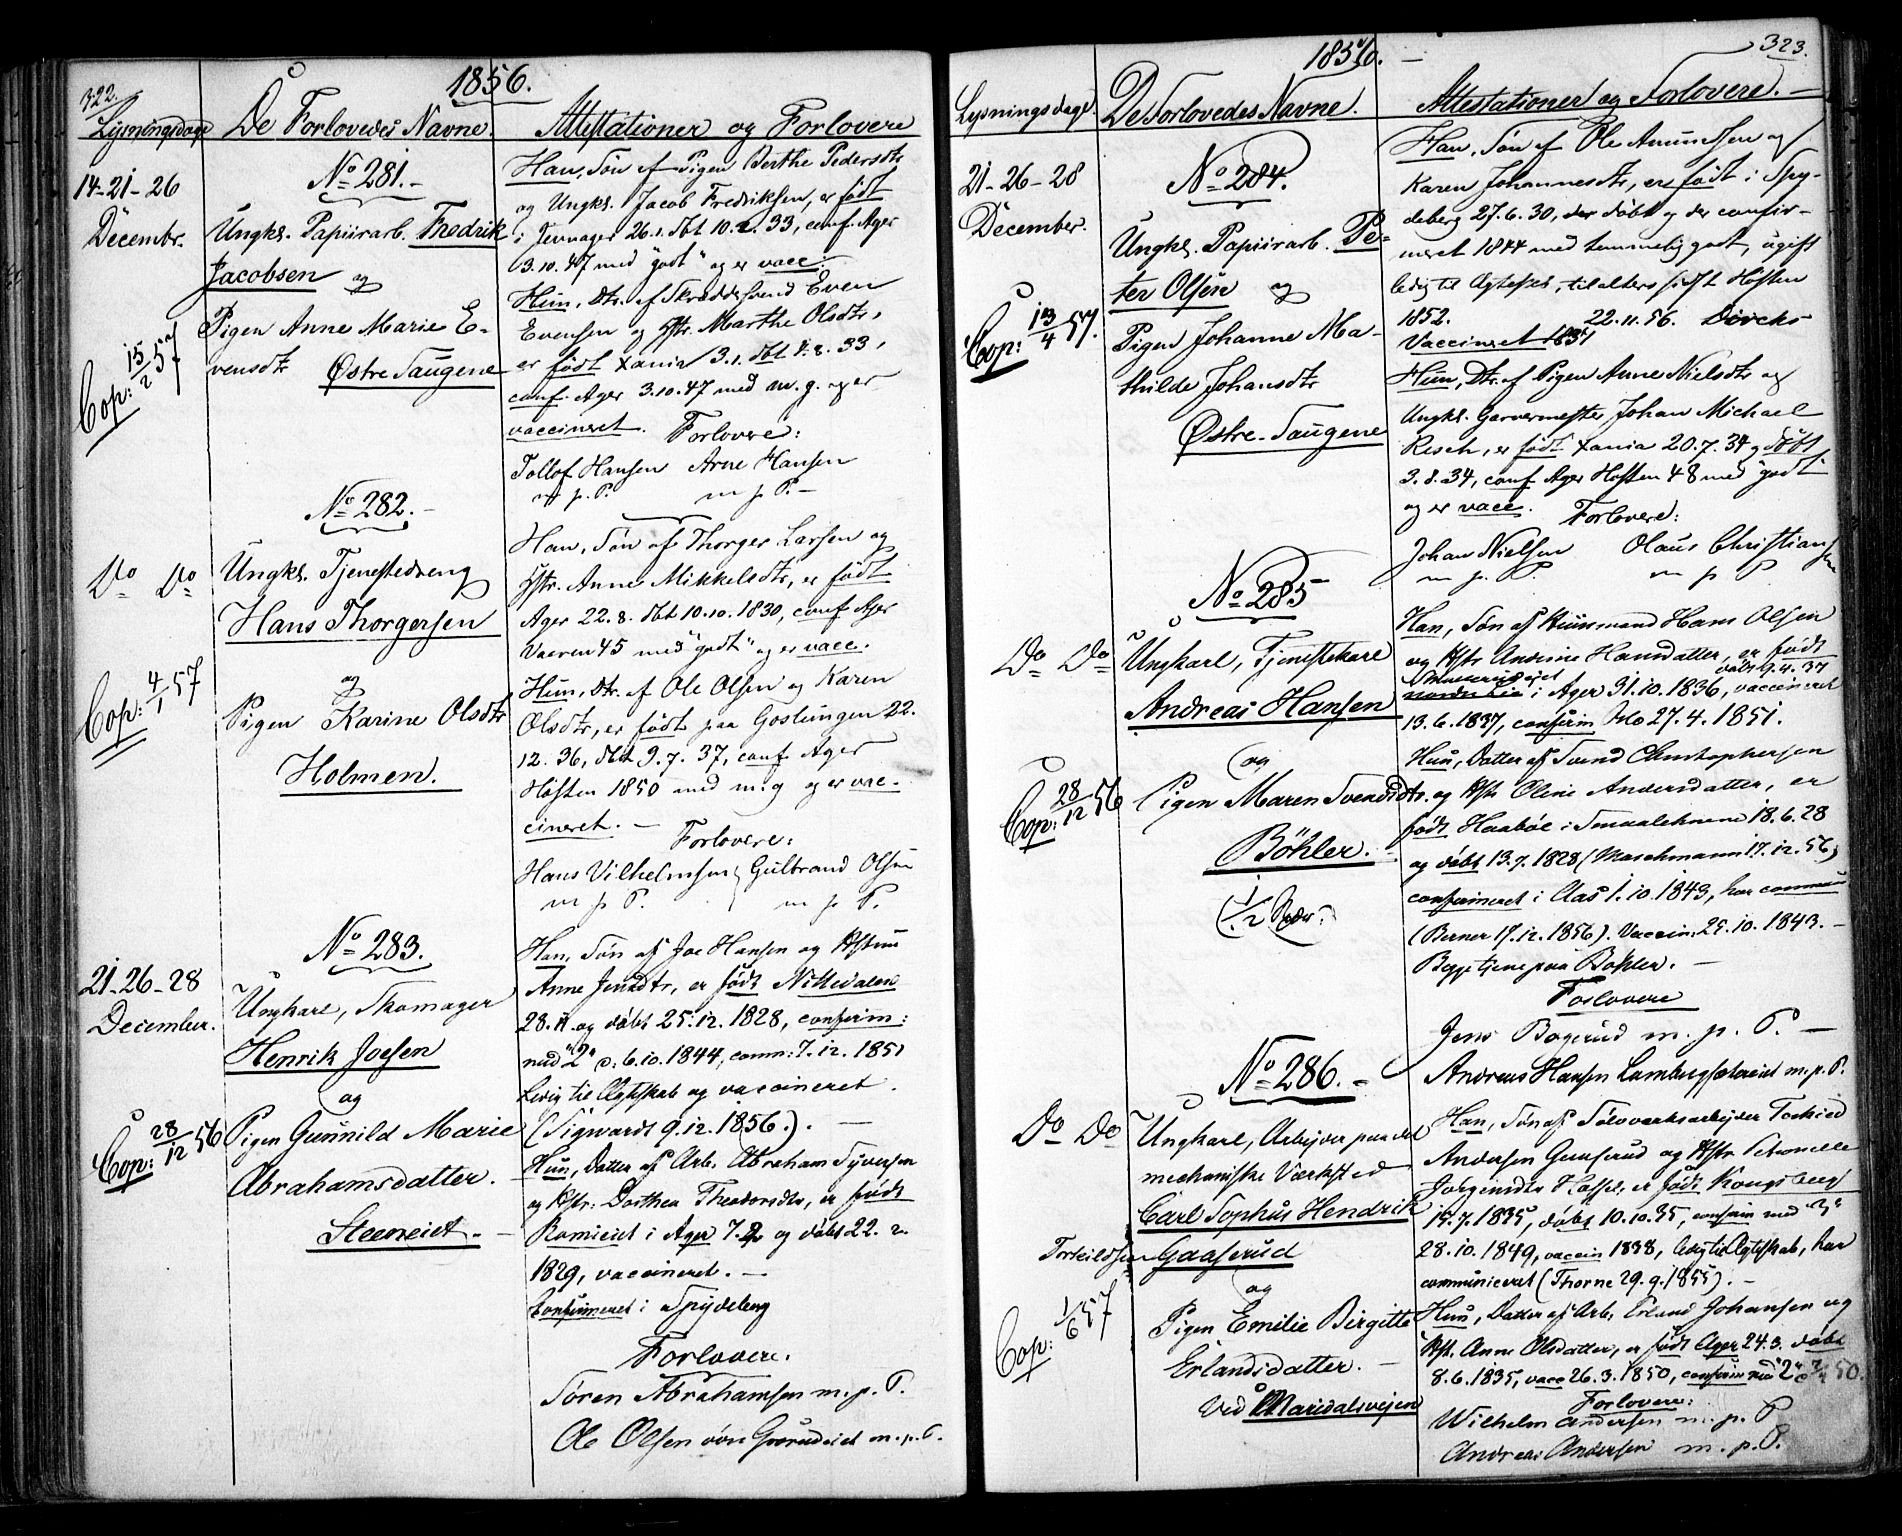 322.
1856.
Lysningsdage De Forlovedes Navne. Attestationer og Forlovere
14-21-26
Decembr.
Cop: 15/2 57
No 281.-
Ungkl. Papiirarb. Fredrik
Jacobsen og
Pigen Anne Marie E-
vensdtr Østre Saugene
Han, Søn af Pigen Berthe Pedersdtr
og Ungkl. Jacob Fredriksen, er født
i Jevnager 26.1. dbt 10.2. 33, conf. Ager
3.10.47 med "godt" og er vacc.
Hun, Dtr. af Skræddersvend Even
Evensen og Hstr. Marthe Olsdtr,
er født Xania 3.1. dbt 4.8.33,
conf. Ager 3.10.47 med m.g. og er
vaccineret. Forlovere:
Tollof Hansen Arne Hansen
m. p. P. m p P.-
Do Do
Cop: 4/1 57
No 282.-
Ungkl. Tjenestedreng
Hans Thorgersen
og
Pigen Karine Olsdtr
Holmen.
Han, Søn af Thorger Larsen og
Hstr. Anne Mikkelsdtr, er født
Ager 22.8. dbt 10.10.1830, conf Ager
Vaaren 45 med "godt" og er vacc.
Hun, Dtr. af Ole Olsen og Karen
Olsdtr, er født paa Goslungen 22.
12.36, dbt 9.7.37, conf Ager
Høsten 1850 med m.g og er vac-
cineret.-
Forlovere:
Hans Vilhelmsen Gulbrand Olsen
m p P. m p P.
21-26-28
December.
Cop: 28/12 56
No 283.
Ungkarl, Skomager
Henrik Joesen
og
Pigen Gunnild Marie
Abrahamsdatter.
Steeneiet.-
Han, Søn af Joe Hansen og Hstru
Anne Jensdtr, er født Nittedalen
28.11. og døbt 25.12.1828, confirm:
med "2" d. 6.10.1844, comm: 7.12.1851
Ledig til Ægteskab og vaccineret.
(Sigwardt 9.12.1856.).-
Hun, Datter af Arb. Abraham Syversen
og Hstr: Dorthea Theodorsdtr, er født
i Ager 7.2 og døbt 22. 2.
1829, vaccineret.-
Confirmeret i Spydeberg
Forlovere.
Søren Abrahamsen m. p. P.
Ole Olsen øvre Grorudeiet m.p.P.
323.
1856.-
Lysningsdage De Forlovedes Navne. Attestationer og Forlovere.-
21-26-28
December.
Cop: 13/4 57.
No 284.
Ungkl. Papiirarb. Pe-
ter Olsen og
Pigen Johanne Ma-
thilde Johansdtr
Østre-Saugene
Han, Søn af Ole Amundsen og
Karen Johannesdtr, er født i Spy-
deberg 27.6.30, der døbt og der confir-
meret 1844 med temmelig godt, ugift
ledig til Ægtesk, tilalters sidst Høsten
1852. 22.11.56. Dircks
Vaccineret 1837
Hun, Dtr. af Pigen Anne Nielsdtr og
Ungkl. Garvermester Johan Michael
Resch, er født Xania 20.7.34 og døbt
3.8.34, conf Ager Høsten 48 med godt
og er vacc. Forlovere:
Johan Nielsen Olaus Christiansen
m. p. P. m p P.
Do Do
Cop: 28/12 56
No 285
Ungkarl, Tjenestekarl
Andreas Hansen
og
Pigen Maren Svendsdtr.
Böhler.
Han, Søn af Huusmand Hans Olsen
og Hstr Andrine Hansdatter, er født
døbt 9.4.37
i Ager 31.10.1836, vaccineret
13.6.1837, confirm Oslo 27.4.1851.
Hun, Datter af Svend Christophersen
og Hstr Oline Andersdatter, er
født Haabøl i Smaalehnene 18.6.28
og døbt 13.7.1828 (Maschmann 17.12.56)
confirmeret i Aas 1.10.1843, har commun
(Berner 17.12.1856). Vaccin: 25.10.1843.-
Begge tjene paa Bøhler.-
Forlovere
Jens Bogerud m. p. P.-
Andreas Hansen Lambergsæter eiet m.p.P.
Do Do
Cop: 1/6 57
No 286.-
Ungkarl, Arbeider paa det
mechaniske Værksted
Carl Sophus Hendrik
Torkildsen Gaaserud
og
Pigen Emilie Birgitte
Erlandsdatter.-
Ved Maridalsvejen
Han, Søn af Sølvverksarbejder Torkild
Andersen Gaaserud og Hstr Petronelle
Jørgensdtr Hassel, er født Kongsberg
19.7.1835, døbt 10.10.35, confirm med "3"
28.10.1849, vaccin 1838, ledig til Ægteskab, har
communiceret (Thorne 29.9.1855).-
Hun, Datter af Arb. Erland Johansen og
Hst. Anne Olsdatter, er født Ager 24.3. døbt
8.6.1835, vacc 26.3.1850, confirm med "2" 50.
Forlovere:
Wilhelm Andersen m. p. P
Andreas Andersen m. p. P.